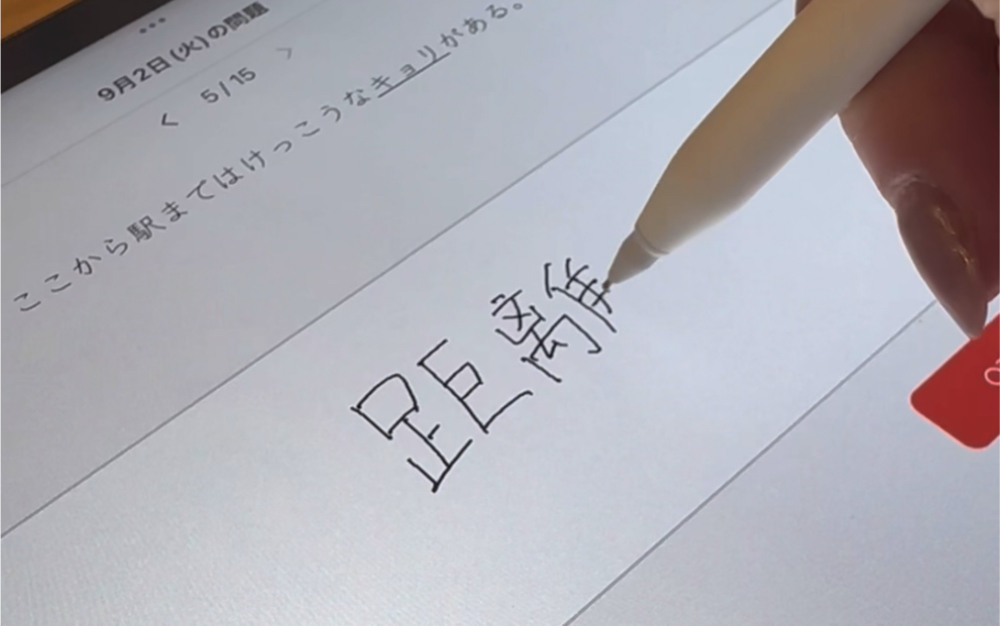 9月2日(火)の問題
< 5/15 >
ここから駅まではけっこうなキョリがある。
距離